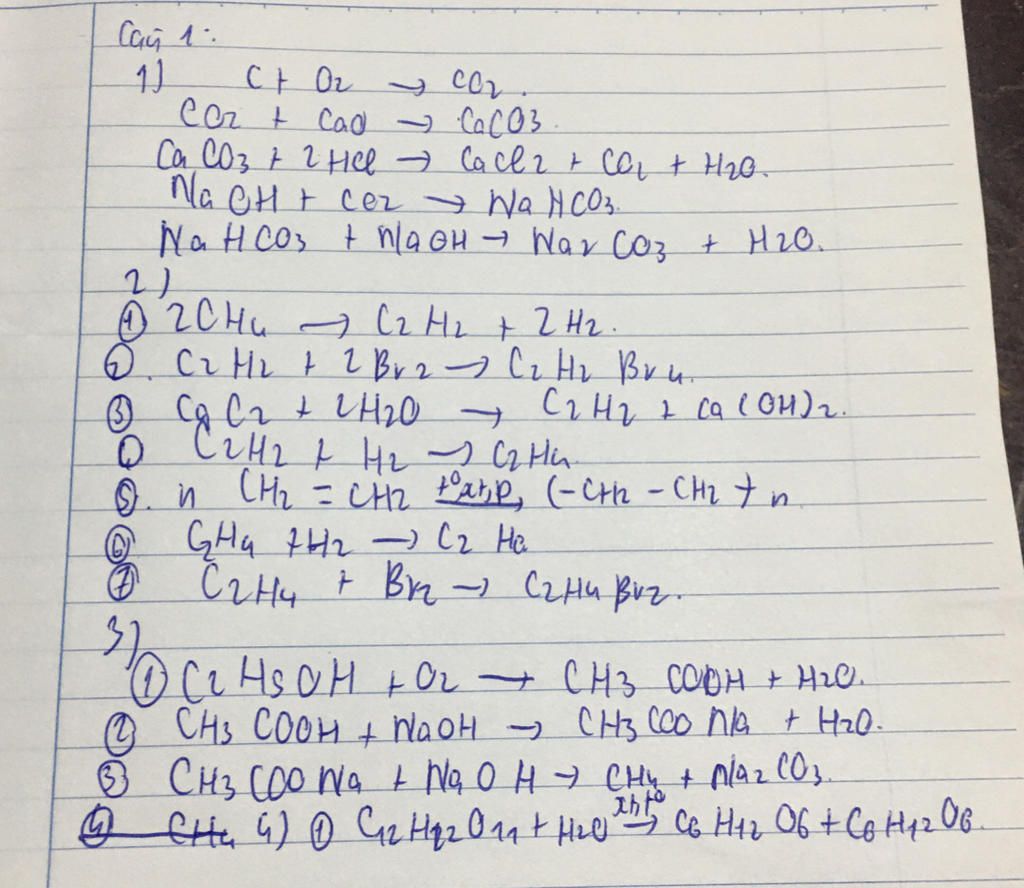 Câu 1:
1) C + O2 → CO2.
CO2 + CaO → CaCO3.
CaCO3 + 2HCl → CaCl2 + CO2 + H2O.
NaOH + CO2 → NaHCO3.
NaHCO3 + NaOH → Na2CO3 + H2O.
2)
① 2CH4 → C2H2 + 2H2.
②. C2H2 + 2Br2 → C2H2Br4.
③ CaC2 + 2H2O → C2H2 + Ca(OH)2.
④ C2H2 + H2 → C2H4
⑤. n CH2 = CH2 t°,xt,p→ (-CH2 - CH2-)n
⑥ C2H4 + H2 → C2H6
⑦ C2H4 + Br2 → C2H4Br2.
3)
① C2H5OH + O2 → CH3COOH + H2O.
② CH3COOH + NaOH → CH3COONa + H2O.
③ CH3COONa + NaOH → CH4 + Na2CO3.
④ CH4 4) ① C12H22O11 + H2O xt,t°→ C6H12O6 + C6H12O6.